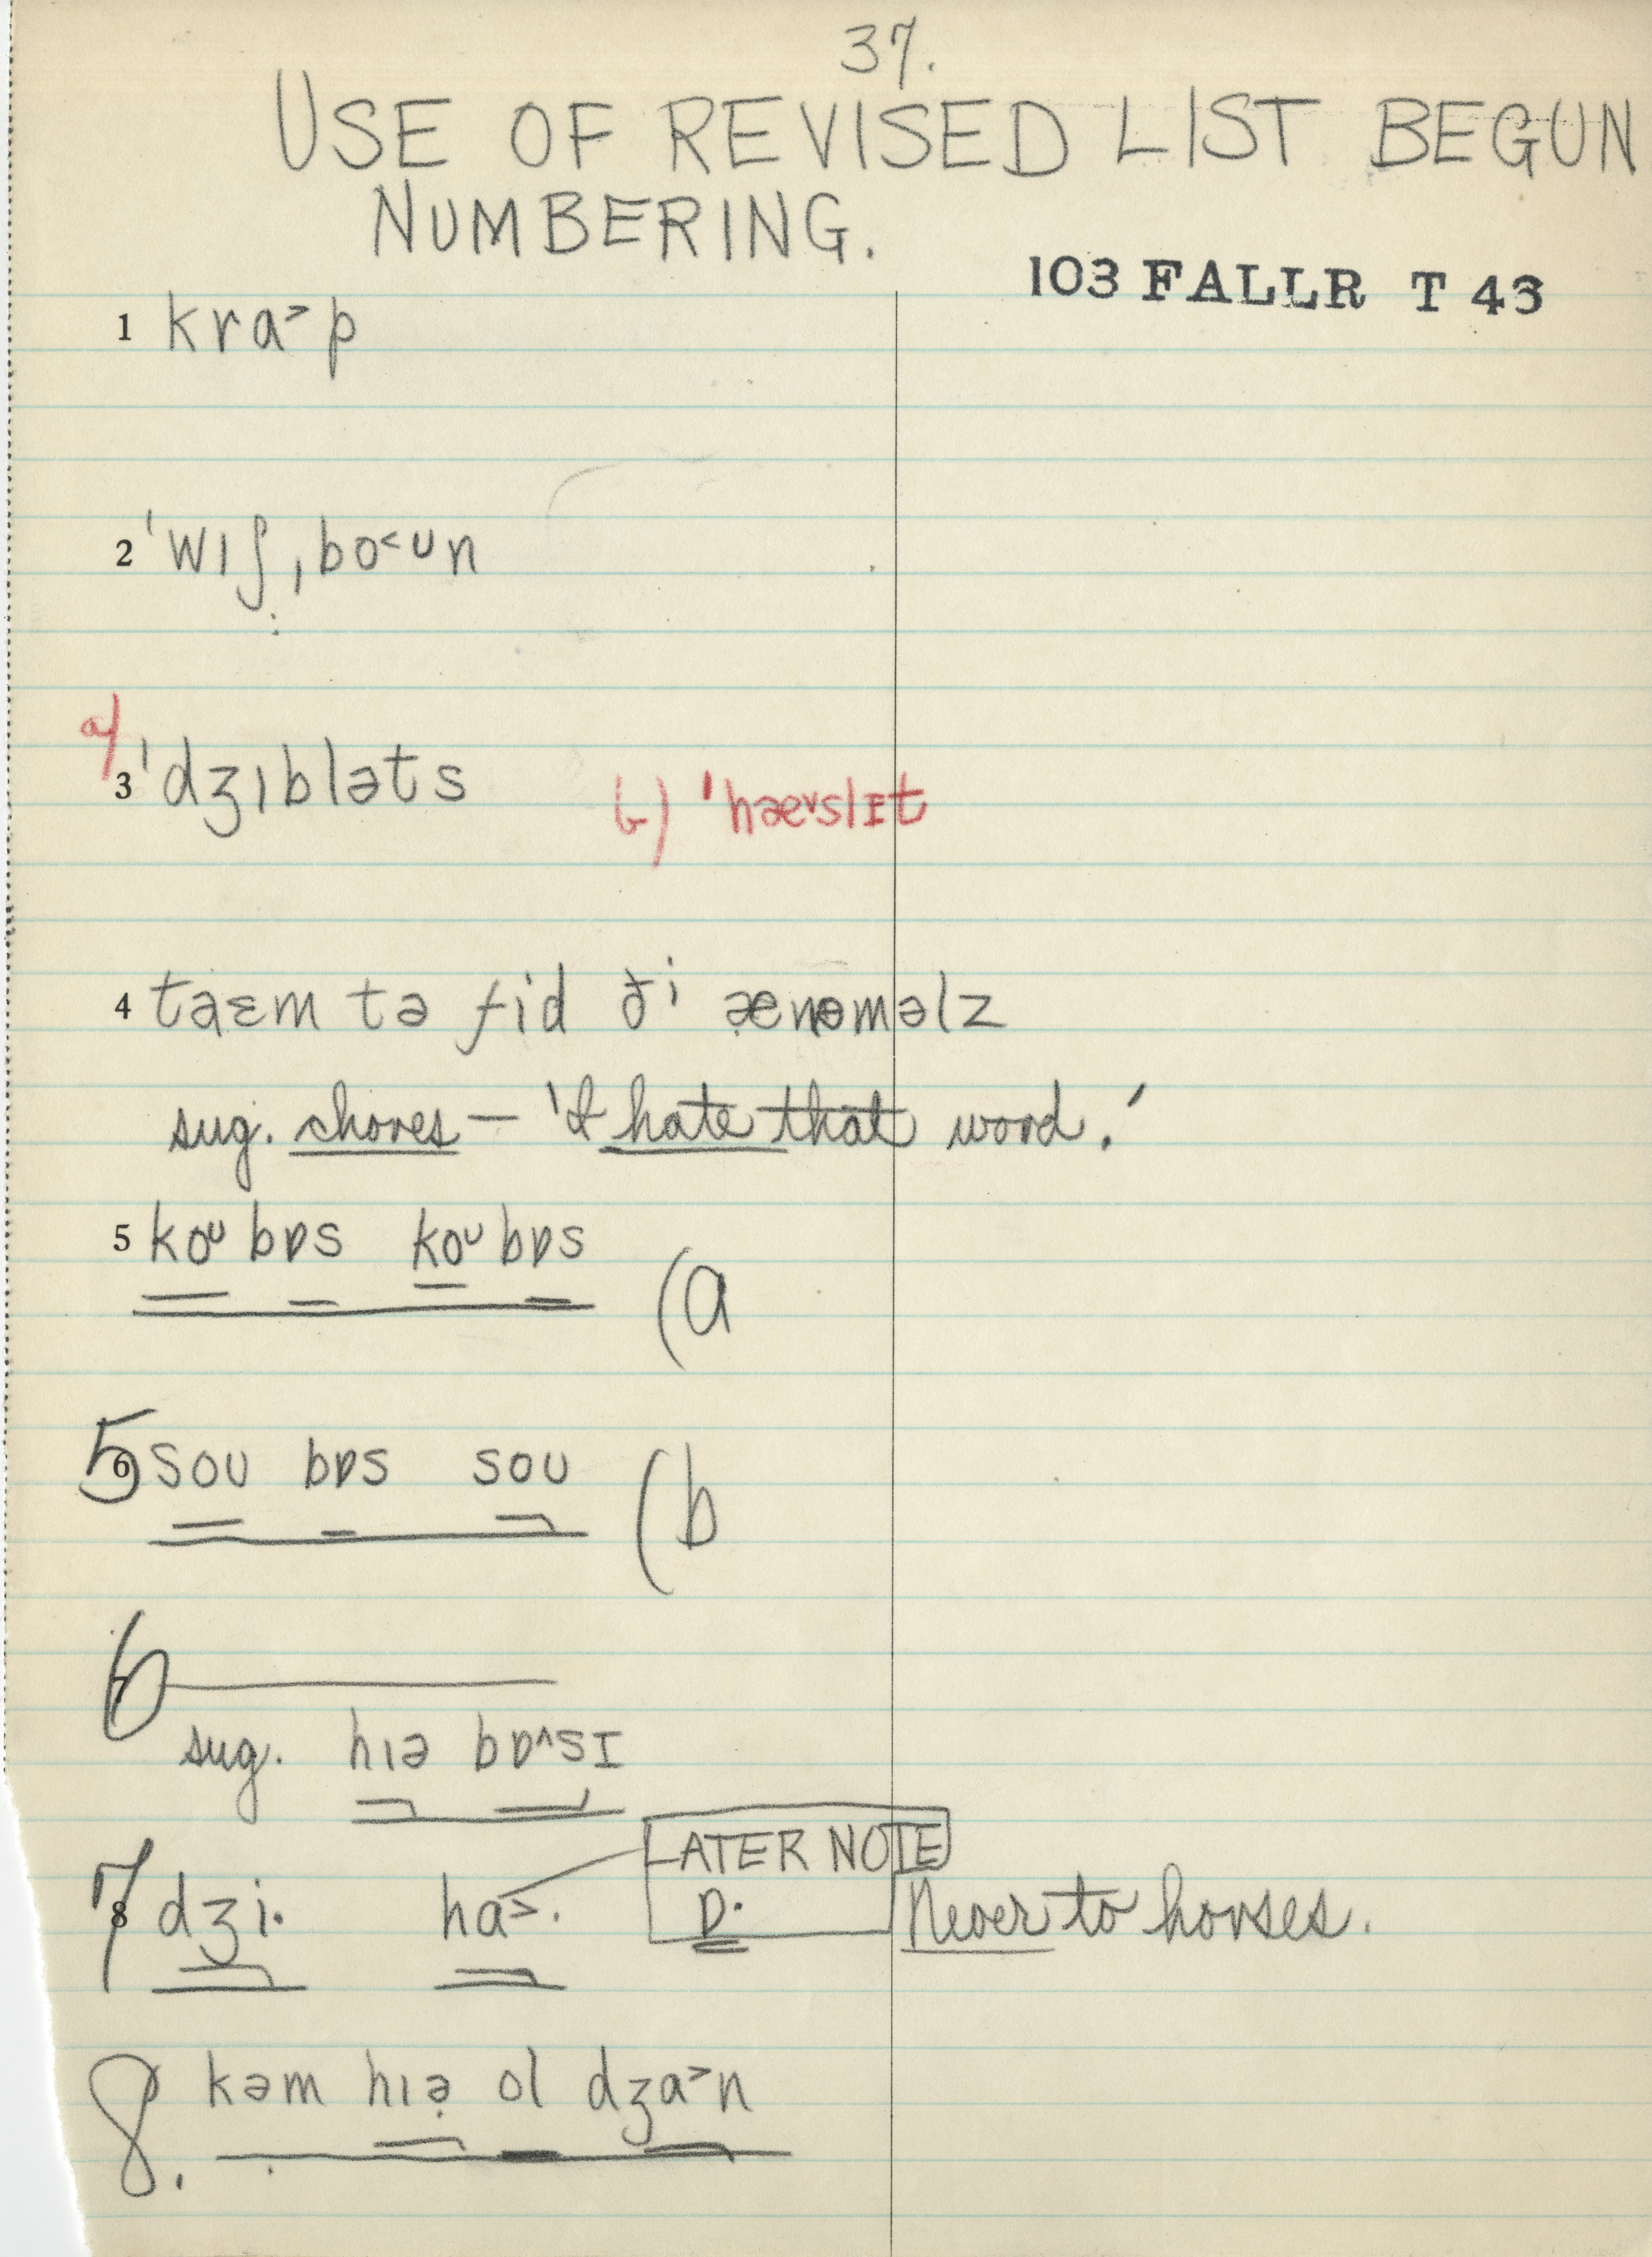 37.
USE OF REVISED LIST BEGUN
NUMBERING.
103 FALLR T 43
1 kra˃p
2 ˈwıʃ̣ˌbo˂ʊn
a) 3 ˈdʒıbləts b) ˈhæ˅slɪt
4 taɛm tə fid ði æ̣nəməlz
sug. chores – 'I hate that word.'
5 koᴜ bɒs koᴜ bɒs (a
5 6 soᴜ bɒs soᴜ (b
6 7
sug. hıə bɒ^sɪ
LATER NOTE
7 8 dʒi· ha˃· ɒ· Never to horses.
8. kəm hıə̣ ol dʒa˃n